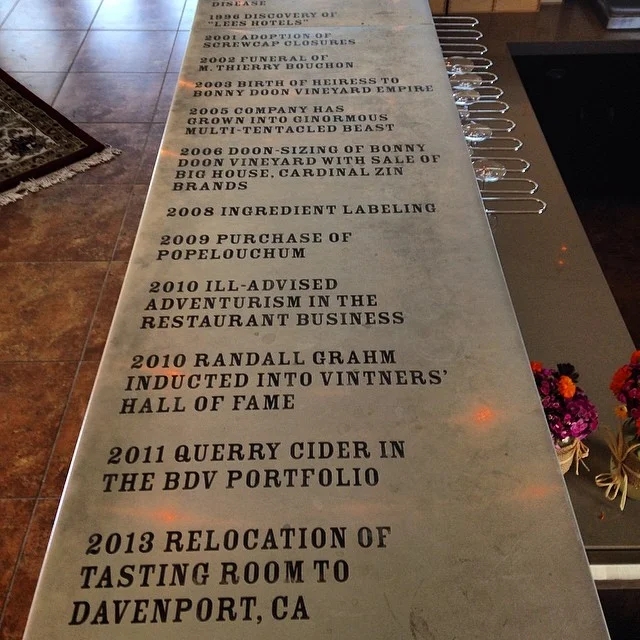 DISEASE
1996 DISCOVERY OF
"LEES HOTELS"
2001 ADOPTION OF
SCREWCAP CLOSURES
2002 FUNERAL OF
M. THIERRY BOUCHON
2003 BIRTH OF HEIRESS TO
BONNY DOON VINEYARD EMPIRE
2005 COMPANY HAS
GROWN INTO GINORMOUS
MULTI-TENTACLED BEAST
2006 DOON-SIZING OF BONNY
DOON VINEYARD WITH SALE OF
BIG HOUSE, CARDINAL ZIN
BRANDS
2008 INGREDIENT LABELING
2009 PURCHASE OF
POPELOUCHUM
2010 ILL-ADVISED
ADVENTURISM IN THE
RESTAURANT BUSINESS
2010 RANDALL GRAHM
INDUCTED INTO VINTNERS'
HALL OF FAME
2011 QUERRY CIDER IN
THE BDV PORTFOLIO
2013 RELOCATION OF
TASTING ROOM TO
DAVENPORT, CA